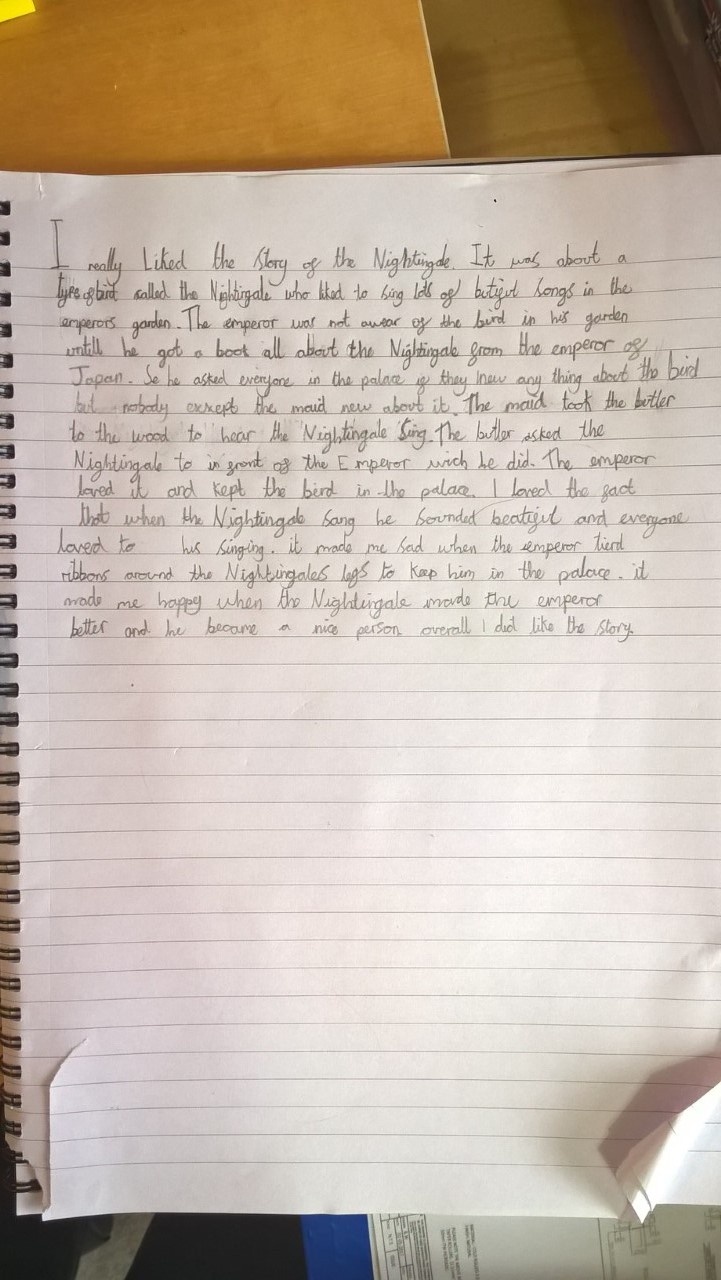 I really Liked the Story of the Nightingale. It was about a
type of bird called the Nightigale who liked to sing lots of butiful songs in the
emperors garden. The emperor was not awear of the bird in his garden
untill he got a book all about the Nightingale from the emperor of
Japan. So he asked everyone in the palace if they knew any thing about the bird
but nobody except the maid new about it. The maid took the butler
to the wood to hear the Nightingale Sing. The butler asked the
Nightingale to in front of the Emperor wich he did. The emperor
loved it and kept the bird in the palace. I loved the fact
that when the Nightingale sang he sounded beatiful and everyone
loved to his singing. it made me sad when the emperor tierd
ribbons around the Nightingales legs to keep him in the palace. it
made me happy when the Nightingale made the emperor
better and he became a nice person overall I did like the story.